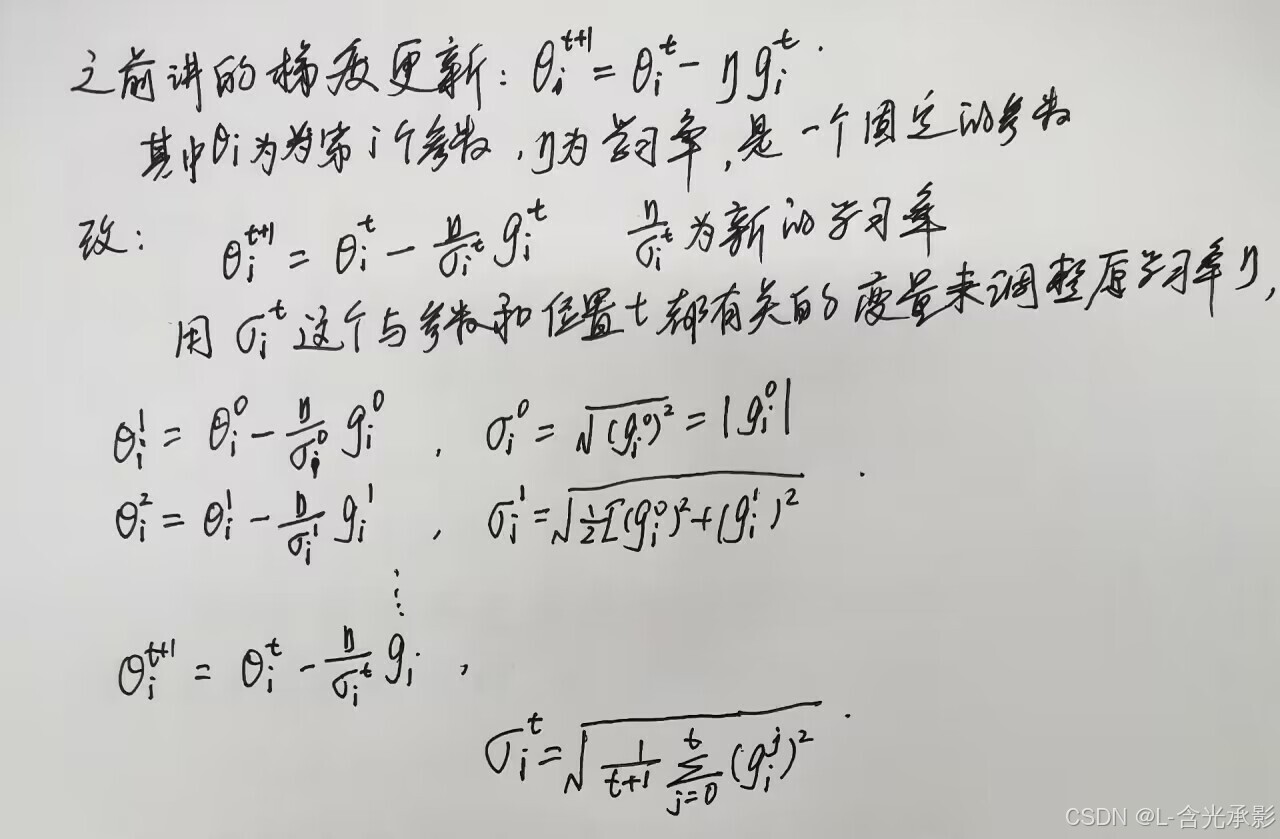 之前讲的梯度更新：θᵢᵗ⁺¹ = θᵢᵗ − η gᵢᵗ .
其中θi为为第i个参数，η为学习率，是一个固定的参数
改： θᵢᵗ⁺¹ = θᵢᵗ − η/σᵢᵗ gᵢᵗ η/σᵢᵗ 为新的学习率
用 σᵢᵗ 这个与参数和位置t都有关的度量来调整原学习率η，
θᵢ¹ = θᵢ⁰ − η/σᵢ⁰ gᵢ⁰ ， σᵢ⁰ = √(gᵢ⁰)² = |gᵢ⁰|
θᵢ² = θᵢ¹ − η/σᵢ¹ gᵢ¹ ， σᵢ¹ = √½[(gᵢ⁰)²+(gᵢ¹)² .
⋮
θᵢᵗ⁺¹ = θᵢᵗ − η/σᵢᵗ gᵢ ，
σᵢᵗ = √1/(t+1) ∑_{j=0}^{t} (gᵢʲ)² .
CSDN @L-含光承影